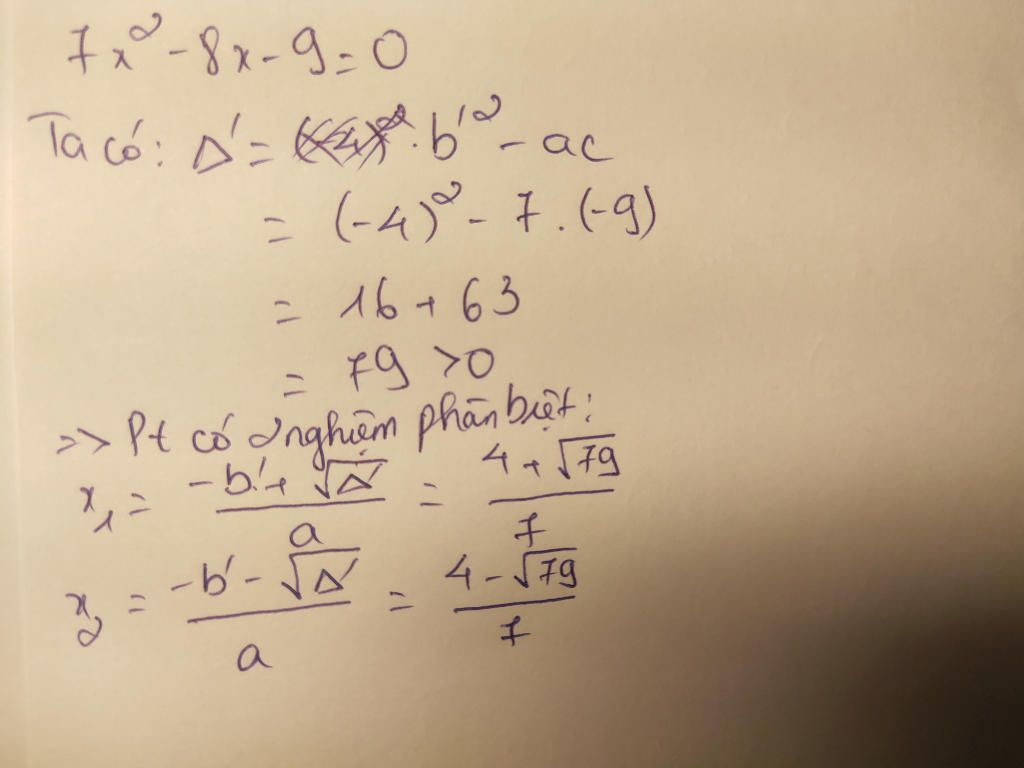 7x² - 8x - 9 = 0
Ta có: Δ' = b'² - ac
= (-4)² - 7 . (-9)
= 16 + 63
= 79 > 0
=>> Pt có 2 nghiệm phân biệt:
x₁ = (-b' + √Δ')/a = (4 + √79)/7
x₂ = (-b' - √Δ')/a = (4 - √79)/7